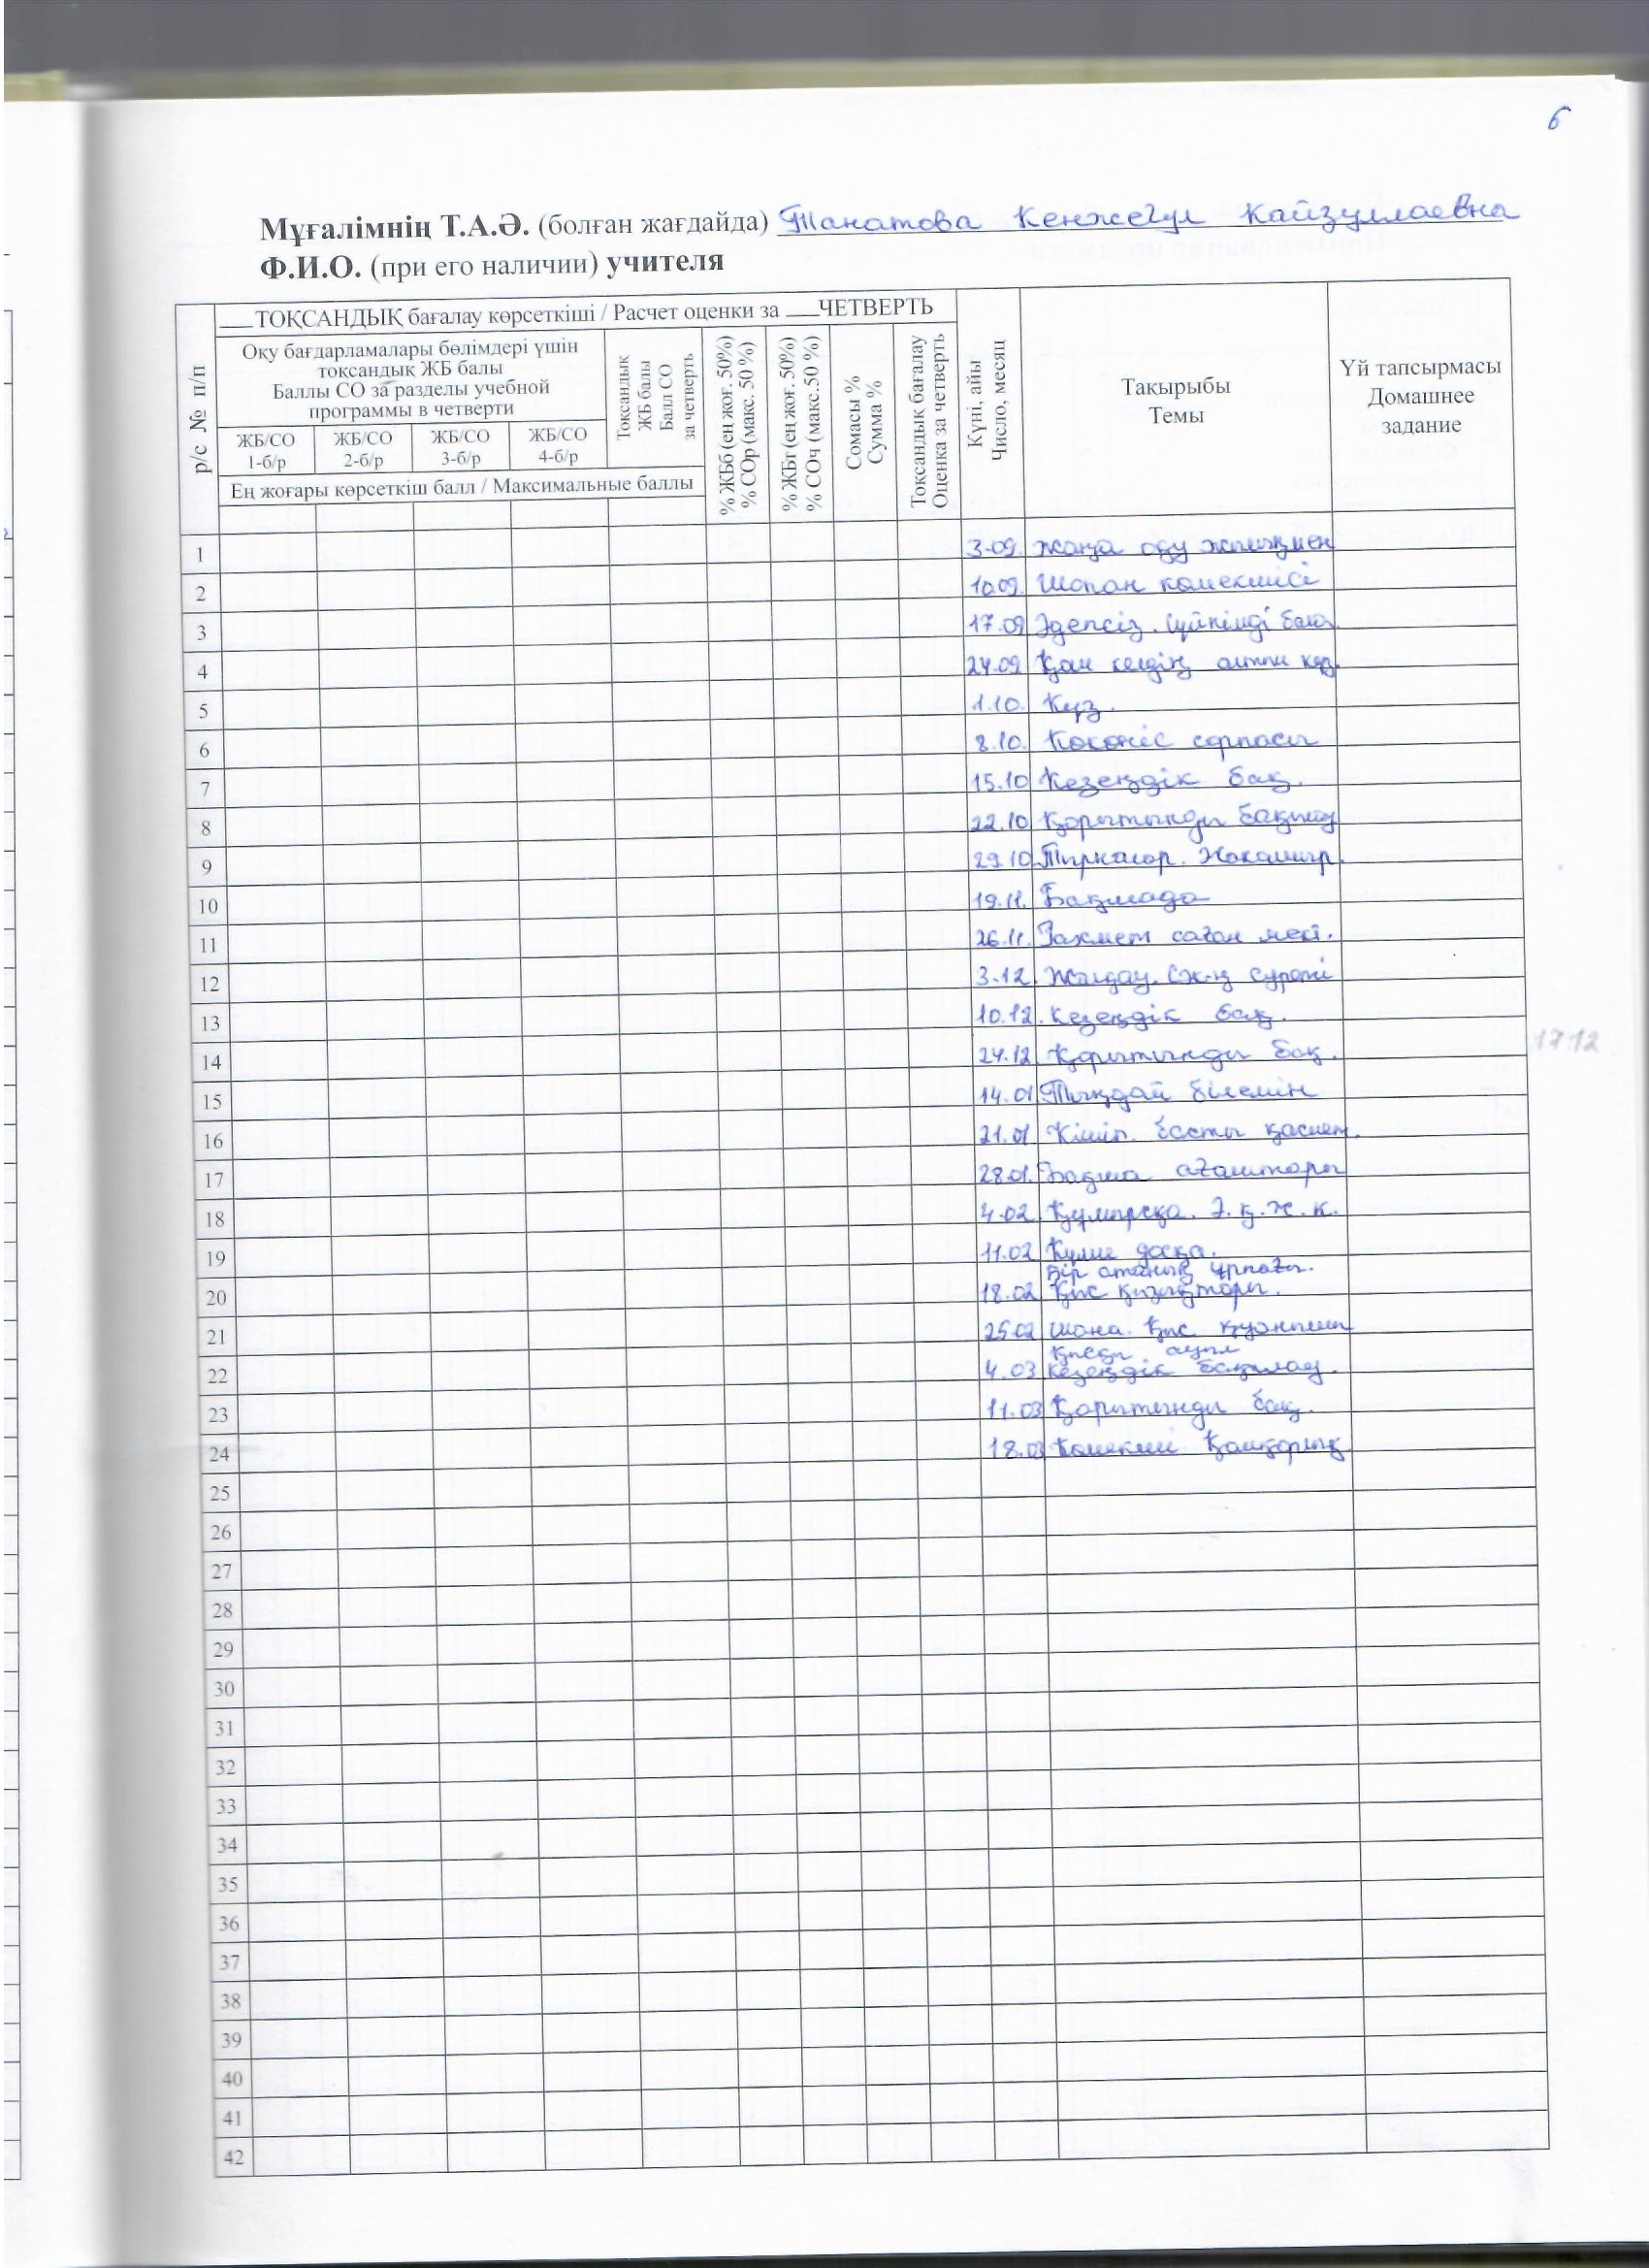 6
Мұғалімнің Т.А.Ә. (болған жағдайда) Танатова Кенжегул Кайзуллаевна
Ф.И.О. (при его наличии) учителя
р/с № п/п
___ ТОҚСАНДЫҚ бағалау көрсеткіші / Расчет оценки за ___ЧЕТВЕРТЬ
Оқу бағдарламалары бөлімдері үшін
тоқсандық ЖБ балы
Баллы СО за разделы учебной
программы в четверти
ЖБ/СО 1-б/р
ЖБ/СО 2-б/р
ЖБ/СО 3-б/р
ЖБ/СО 4-б/р
Ең жоғары көрсеткіш балл / Максимальные баллы
Тоқсандық
ЖБ балы
Балл СО
за четверть
% ЖБб (ең жоғ. 50%)
% СОр (макс. 50 %)
% ЖБт (ең жоғ. 50%)
% СОч (макс.50 %)
Сомасы %
Сумма %
Тоқсандық бағалау
Оценка за четверть
Күні, айы
Число, месяц
Тақырыбы
Темы
Үй тапсырмасы
Домашнее
задание
1 3.09. Жаңа оқу жылымен
2 10.09. Шопан көмекшісі
3 17.09 Әдепсіз.
4 24.09 Қош келдің алтын күз.
5 1.10. Күз.
6 8.10. Көкөніс сорпасы
7 15.10 Кезеңдік бақ.
8 22.10 Қорытынды бақылау
9 29.10
10 19.11. Бақшада
11 26.11. Рахмет саған мект.
12 3.12. суреті
13 10.12. Кезеңдік бақ.
14 24.12 Қорытынды бақ.
17.12
15 14.01 Тыңдай білемін
16 21.01 Кішіп. басты қасиет.
17 28.01. Бақша ағаштары
18 4.02. Құмырсқа. Ә.қ.ж.к.
19 11.02
Бір атаның ұрпағы.
20 18.02 Қыс қызықтары.
21 25.02 Шана. Қыс қуанышы
Қысқы ауыл
22 4.03 Кезеңдік бақылау.
23 11.03 Қорытынды бақ.
24 18.03 Көмекші Қамқорлық
25
26
27
28
29
30
31
32
33
34
35
36
37
38
39
40
41
42